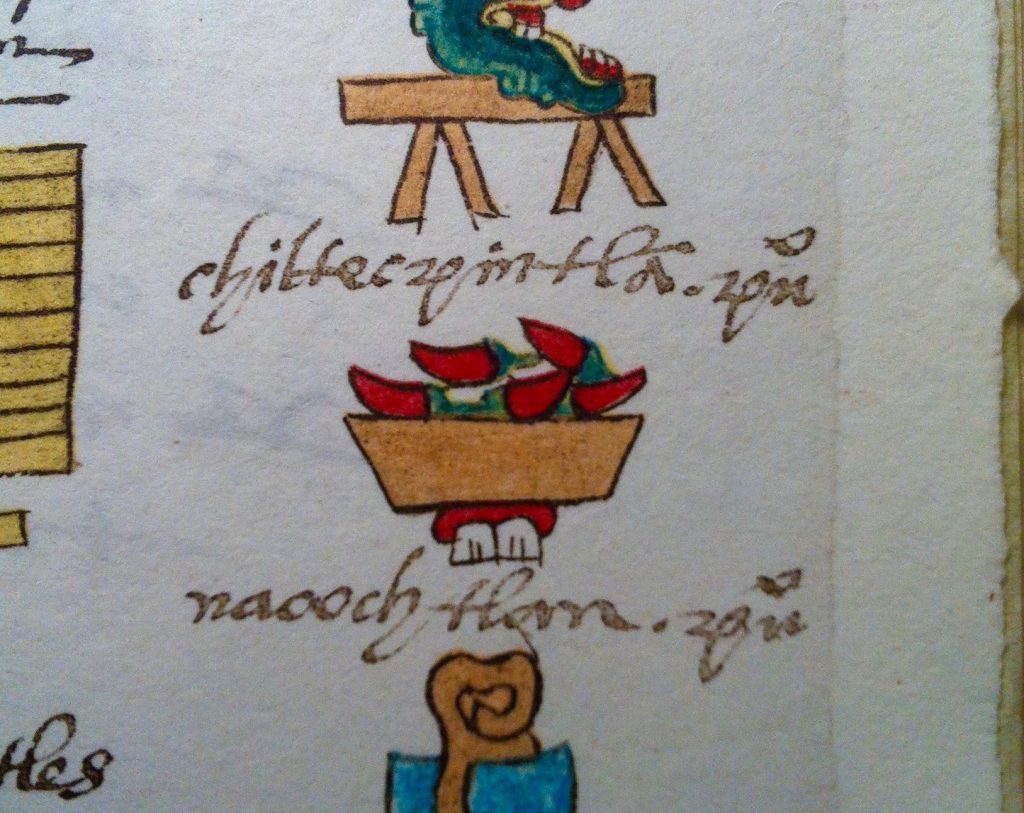 chiltecpintlã. puº
naoochtlan. puº
tles